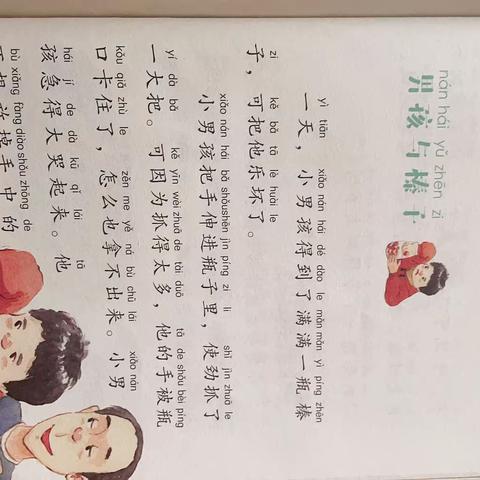 nán hái yǔ zhēn zi
男孩与榛子
yì tiān xiǎo nán hái dé dao le mǎn mǎn yì píng zhēn
一天，小男孩得到了满满一瓶榛
zi kě bǎ tā lè huài le
子，可把他乐坏了。
xiǎo nán hái bǎ shǒu shēn jìn píng zi li shǐ jìn zhuā le
小男孩把手伸进瓶子里，使劲抓了
yí dà bǎ kě yīn wèi zhuā de tài duō tā de shǒu bèi píng
一大把。可因为抓得太多，他的手被瓶
kǒu qiǎ zhù le zěn me yě ná bù chū lái xiǎo nán
口卡住了，怎么也拿不出来。小男
hái jí de dà kū qǐ lái tā
孩急得大哭起来。他
bù xiǎng fàng diào shǒu zhōng de
不想放掉手中的